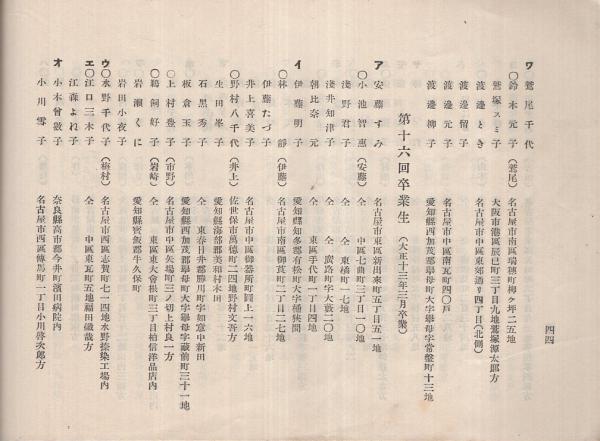 ワ 鷲尾千代
〇鈴木元子(鷲尾) 名古屋市南區瑞穂町押ケ坪二五地
鷲塚スミ子 大阪市港區辰巳町三丁目九地鷲塚源太郎方
渡邊とき 名古屋市中區東郊通リ四丁目(北側)
渡邊留子
渡邊元子 名古屋市中區南瓦町四〇戸
渡邊柳子 愛知縣西加茂郡擧母町大字擧母字常盤町十三地
第十六回卒業生(大正十三年三月卒業)
ア 安藤すみ 名古屋市東區新出來町五丁目五一地
〇小池智惠(安藤) 仝 中區七曲町三丁目一〇地
淺野君子 仝 東橘町一七地
淺井知津子 仝 廣路町字大藪二〇地
朝比奈元 仝 東區手代町一丁目四地
イ 伊藤明子 愛知縣知多郡有松町大字桶狹間
〇林靜(伊藤) 名古屋市南區御莨町二丁目二七地
伊藤たづ子
井上喜美子 名古屋市中區御器所町圓上一六地
〇野村八千代(井上) 佐世保市萬徳町二四地野村文吾方
生田峯子 愛知縣海部郡美和村木田
石黒秀子 仝 東春日井郡勝川町字如意申新田
板倉玉子 愛知縣西加茂郡擧母町大字擧母字藏前町三十一地
〇上村登子(市野) 名古屋市中區矢場町三ノ切上村良一方
〇鵜飼好子(岩崎) 仝 東區東大曾根町三丁目柏信洋品店内
岩瀬くに 愛知縣寳飯郡牛久保町
岩田小夜子
ウ〇水野千代子(梅村) 名古屋市西區志賀町七一四地水野捺染工場内
エ〇江口三木子 仝 中區東瓦町五地福田磯哉方
江森よれ子
オ 小木曾敬子 奈良縣高市郡今井町濱田病院内
小川雪子 名古屋市西區傳馬町一丁目小川啓次郎方
四四